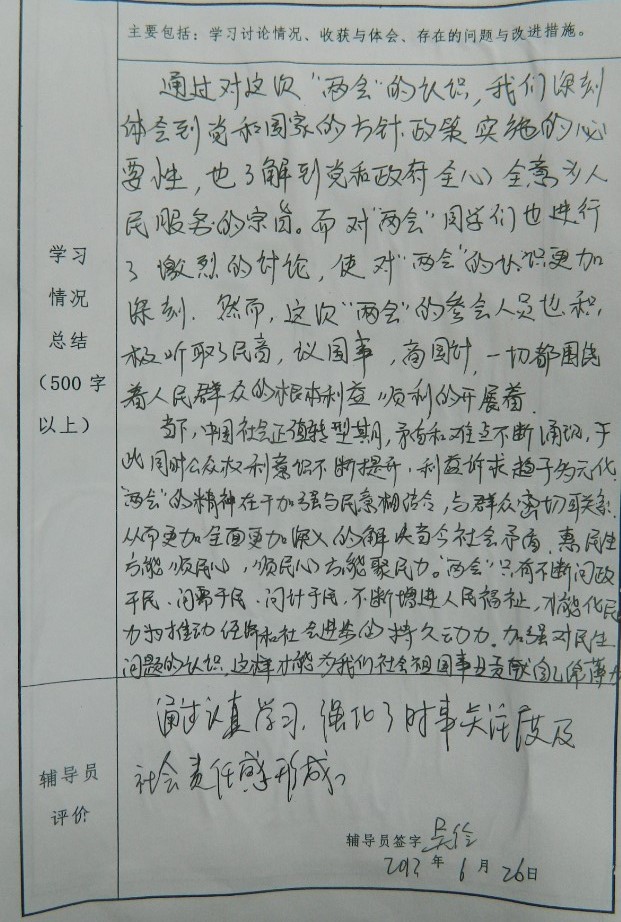 主要包括：学习讨论情况、收获与体会、存在的问题与改进措施。
学习
情况
总结
（500 字
以上）
通过对这次"两会"的认识，我们深刻
体会到党和国家的方针.政策实施的必
要性，也了解到党和政府全心全意为人
民服务的宗旨。而对"两会"同学们也进行
了激烈的讨论，使对"两会"的认识更加
深刻.然而，这次"两会"的参会人员也积
极听取了民意，议国事，商国计，一切都围绕
着人民群众的根本利益顺利的开展着.
当下，中国社会正值转型期，矛盾和难点不断涌现，于
此同时公众权利意识不断提升，利益诉求趋于多元化.
"两会"的精神在于加强与民意相结合，与群众密切联系.
从而更加全面更加深入的解决当今社会矛盾.惠民生
方能顺民心，顺民心方能聚民力。"两会"只有不断问政
于民.问需于民.问计于民，不断增进人民福祉，才能化民
力为推动经济和社会进步的持久动力.加强对民生
问题的认识.这样才能为我们社会祖国事业贡献自己绵薄力
辅导员
评价
通过认真学习.强化了时事关注度及
社会责任感形成。
辅导员签字
2013 年 6 月 26 日